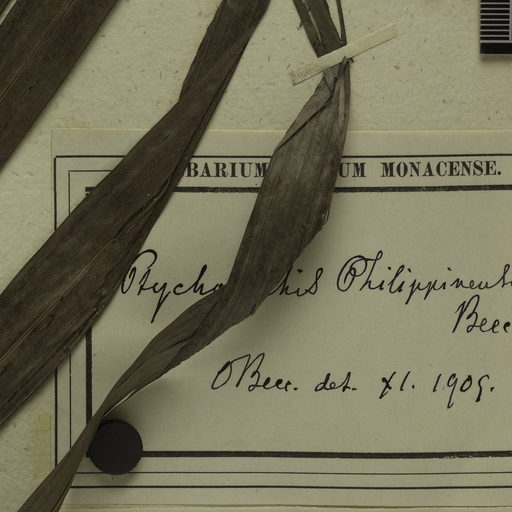 BARIUM UM MONACENSE.
Ptycho his Philippinens
Becc
OBecc. det. XI. 1909.